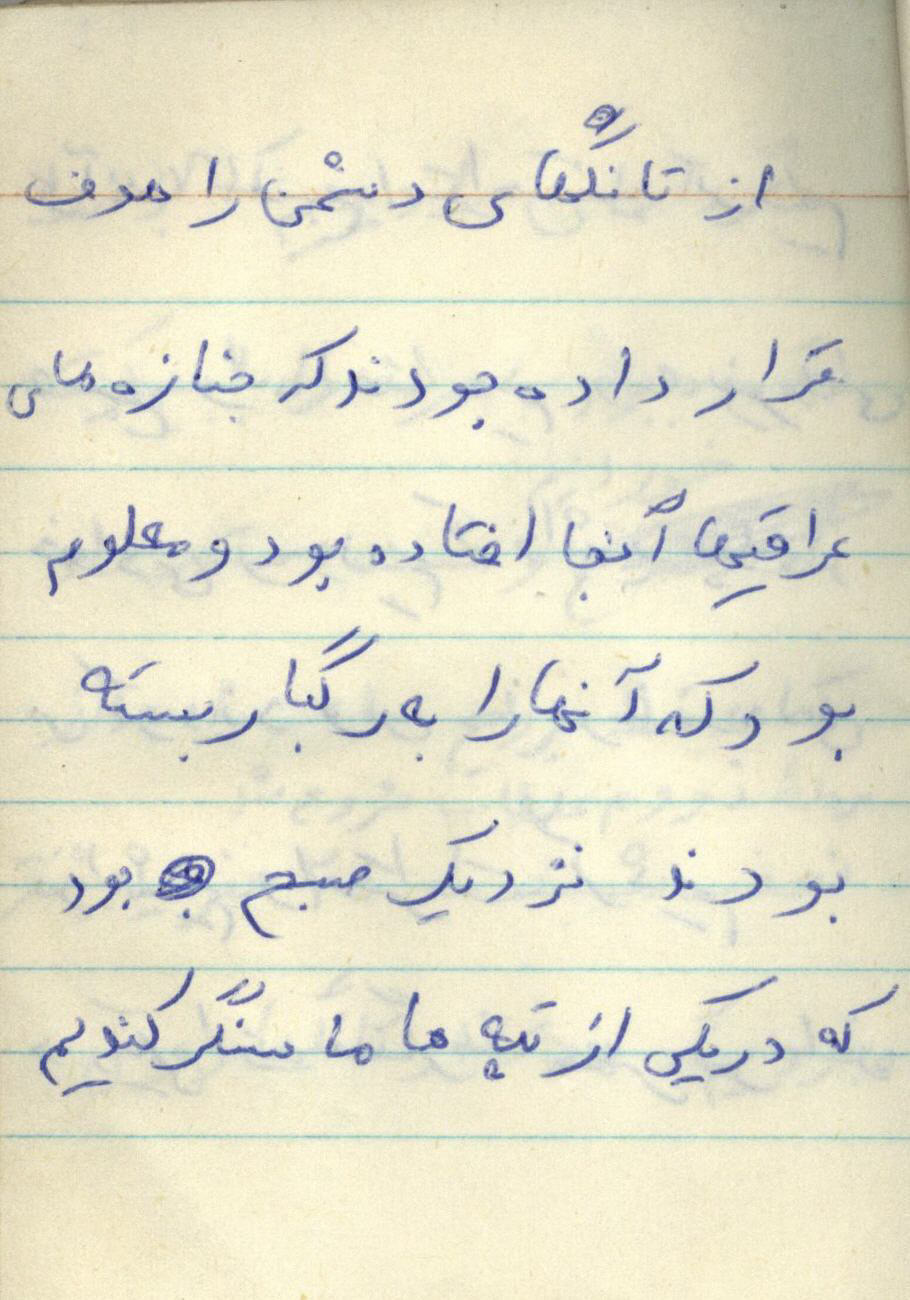 از تانگهای دشمن را هدف
قرار داده بودند که جنازه های
عراقیها آنجا افتاده بود و معلوم
بود که آنها را به رگبار بسته
بودند نزدیک صبح بود
که در یکی از تپه ها ما سنگر کندیم